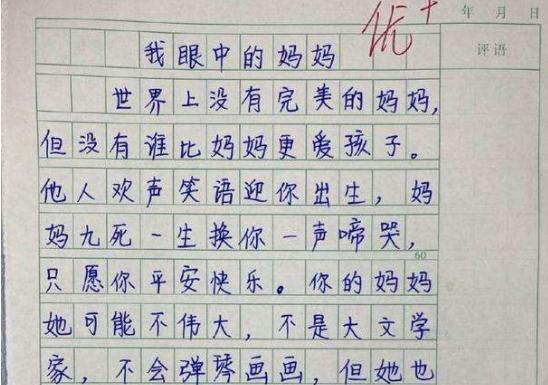 优+
年 月 日
评语
我眼中的妈妈
世界上没有完美的妈妈,
但没有谁比妈妈更爱孩子。
他人欢声笑语迎你出生,妈
妈九死一生换你一声啼哭,
60
只愿你平安快乐。你的妈妈
她可能不伟大,不是大文学
家,不会弹琴画画,但她也